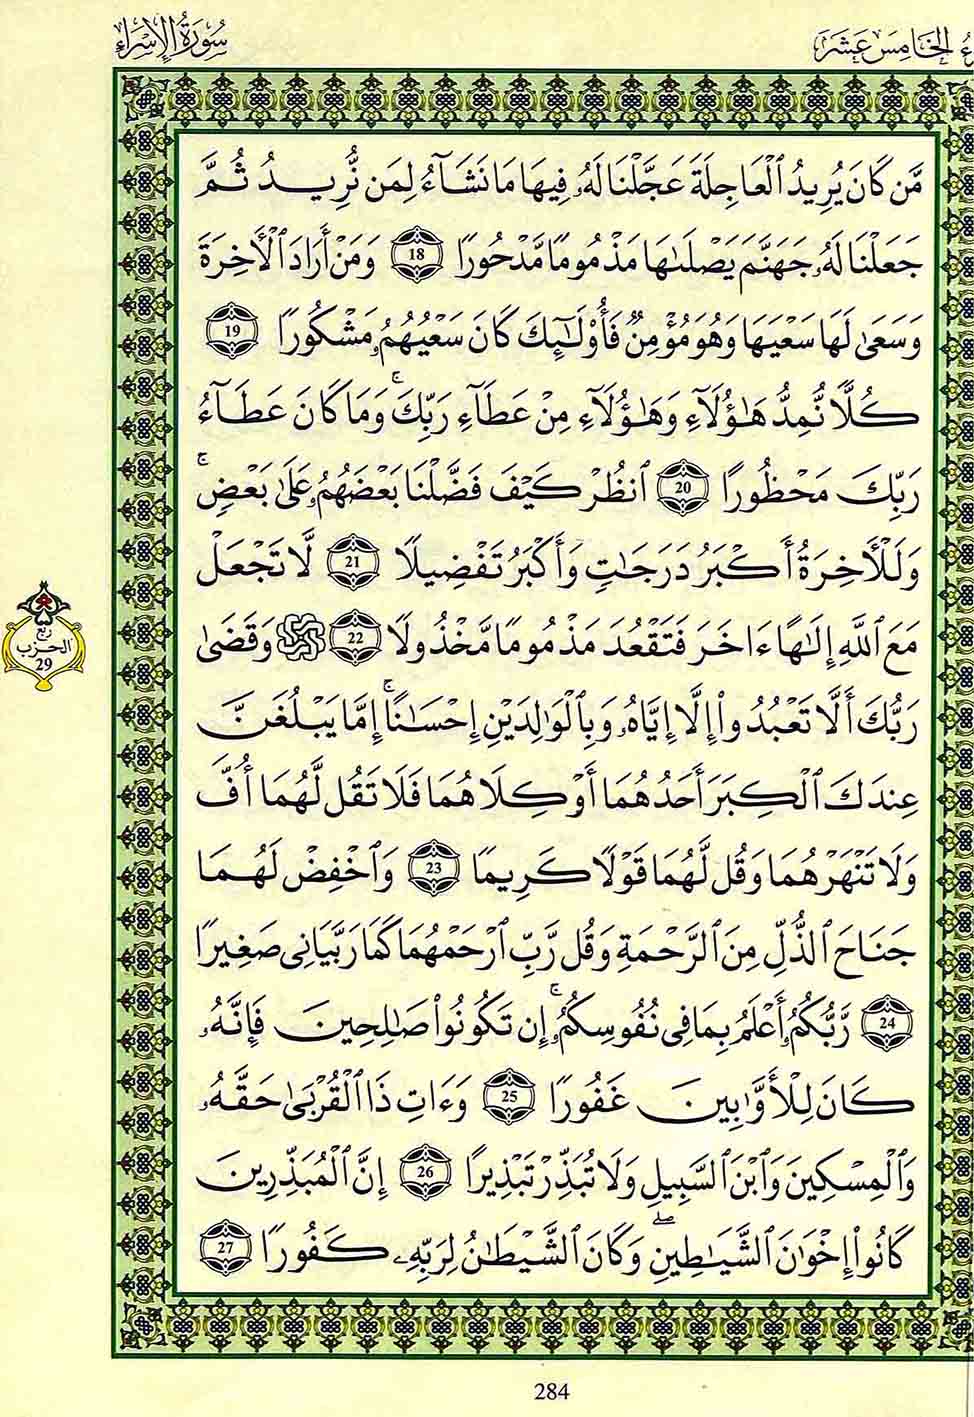 الجزء الخامس عشر
سورة الإسراء
مَّن كَانَ يُرِيدُ ٱلْعَاجِلَةَ عَجَّلْنَا لَهُۥ فِيهَا مَا نَشَآءُ لِمَن نُّرِيدُ ثُمَّ
جَعَلْنَا لَهُۥ جَهَنَّمَ يَصْلَىٰهَا مَذْمُومًا مَّدْحُورًا 18 وَمَنْ أَرَادَ ٱلْأَخِرَةَ
وَسَعَىٰ لَهَا سَعْيَهَا وَهُوَ مُؤْمِنٌ فَأُو۟لَٰٓئِكَ كَانَ سَعْيُهُمُۥ مَشْكُورًا 19
كُلًّا نُّمِدُّ هَٰٓؤُلَآءِ وَهَٰٓؤُلَآءِ مِنْ عَطَآءِ رَبِّكَ ۚ وَمَا كَانَ عَطَآءُ
رَبِّكَ مَحْظُورًا 20 ٱنظُرْ كَيْفَ فَضَّلْنَا بَعْضَهُمُۥ عَلَىٰ بَعْضٍ ۚ
وَلَلْأَخِرَةُ أَكْبَرُ دَرَجَٰتٍ وَأَكْبَرُ تَفْضِيلًا 21 لَّا تَجْعَلْ
مَعَ ٱللَّهِ إِلَٰهًا ءَاخَرَ فَتَقْعُدَ مَذْمُومًا مَّخْذُولًا 22 وَقَضَىٰ
رَبُّكَ أَلَّا تَعْبُدُوٓا۟ إِلَّآ إِيَّاهُ وَبِٱلْوَٰلِدَيْنِ إِحْسَٰنًا ۚ إِمَّا يَبْلُغَنَّ
عِندَكَ ٱلْكِبَرَ أَحَدُهُمَآ أَوْ كِلَاهُمَا فَلَا تَقُل لَّهُمَآ أُفَّ
وَلَا تَنْهَرْهُمَا وَقُل لَّهُمَا قَوْلًا كَرِيمًا 23 وَٱخْفِضْ لَهُمَا
جَنَاحَ ٱلذُّلِّ مِنَ ٱلرَّحْمَةِ وَقُل رَّبِّ ٱرْحَمْهُمَا كَمَا رَبَّيَانِى صَغِيرًا
24 رَّبُّكُمُۥ أَعْلَمُ بِمَا فِى نُفُوسِكُمُۥ ۚ إِن تَكُونُوا۟ صَٰلِحِينَ فَإِنَّهُۥ
كَانَ لِلْأَوَّٰبِينَ غَفُورًا 25 وَءَاتِ ذَا ٱلْقُرْبَىٰ حَقَّهُۥ
وَٱلْمِسْكِينَ وَٱبْنَ ٱلسَّبِيلِ وَلَا تُبَذِّرْ تَبْذِيرًا 26 إِنَّ ٱلْمُبَذِّرِينَ
كَانُوٓا۟ إِخْوَٰنَ ٱلشَّيَٰطِينِ ۖ وَكَانَ ٱلشَّيْطَٰنُ لِرَبِّهِۦ كَفُورًا 27
ربع
الحزب
29
284